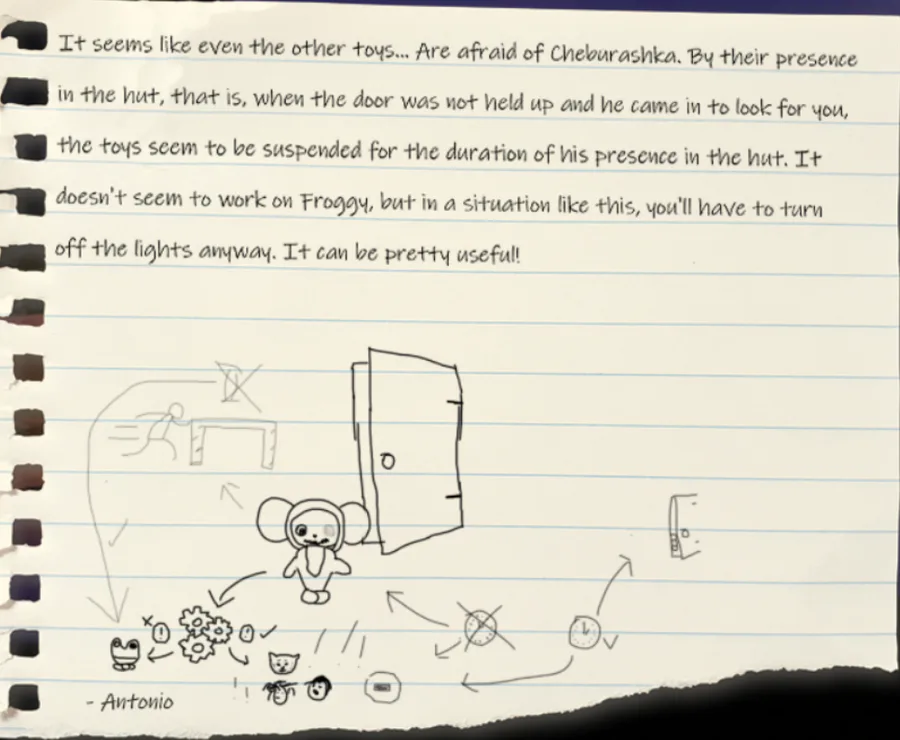 It seems like even the other toys... Are afraid of Cheburashka. By their presence
in the hut, that is, when the door was not held up and he came in to look for you,
the toys seem to be suspended for the duration of his presence in the hut. It
doesn't seem to work on Froggy, but in a situation like this, you'll have to turn
off the lights anyway. It can be pretty useful!
- Antonio